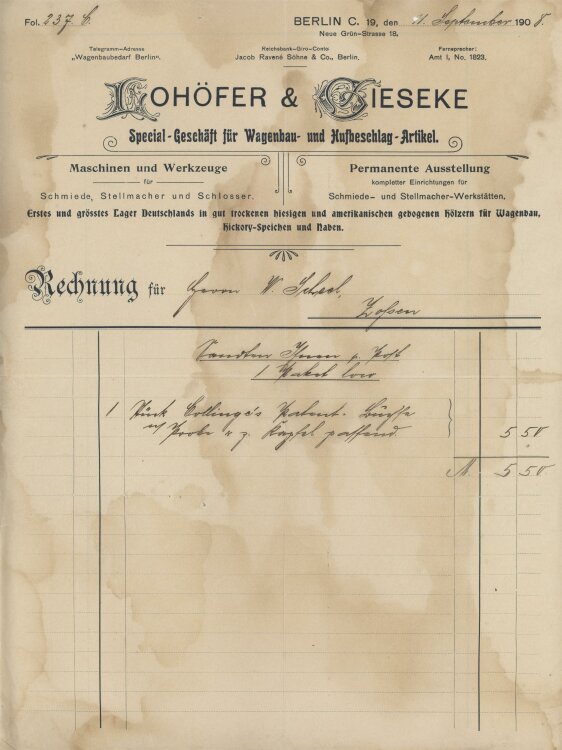 Fol. 237. b. BERLIN C. 19, den 21. September 1908.
Neue Grün-Strasse 18.
Telegramm-Adresse
„Wagenbaubedarf Berlin“.
Reichsbank-Giro-Conto
Jacob Ravené Söhne & Co., Berlin.
Fernsprecher:
Amt I, No. 1823.
LOHÖFER & GIESEKE
Special-Geschäft für Wagenbau- und Hufbeschlag-Artikel.
Maschinen und Werkzeuge
für
Schmiede, Stellmacher und Schlosser.
Permanente Ausstellung
kompletter Einrichtungen für
Schmiede- und Stellmacher-Werkstätten,
Erstes und grösstes Lager Deutschlands in gut trockenen hiesigen und amerikanischen gebogenen Hölzern für Wagenbau,
Hickory-Speichen und Naben.
Rechnung für Herrn W. Scheel,
Zossen
Sandten Ihnen p. Post
1 Paket
1 Stück Collinge's Patent. Büchse
n/ Probe u. z. Kapsel passend. 5 50
M. 5 50